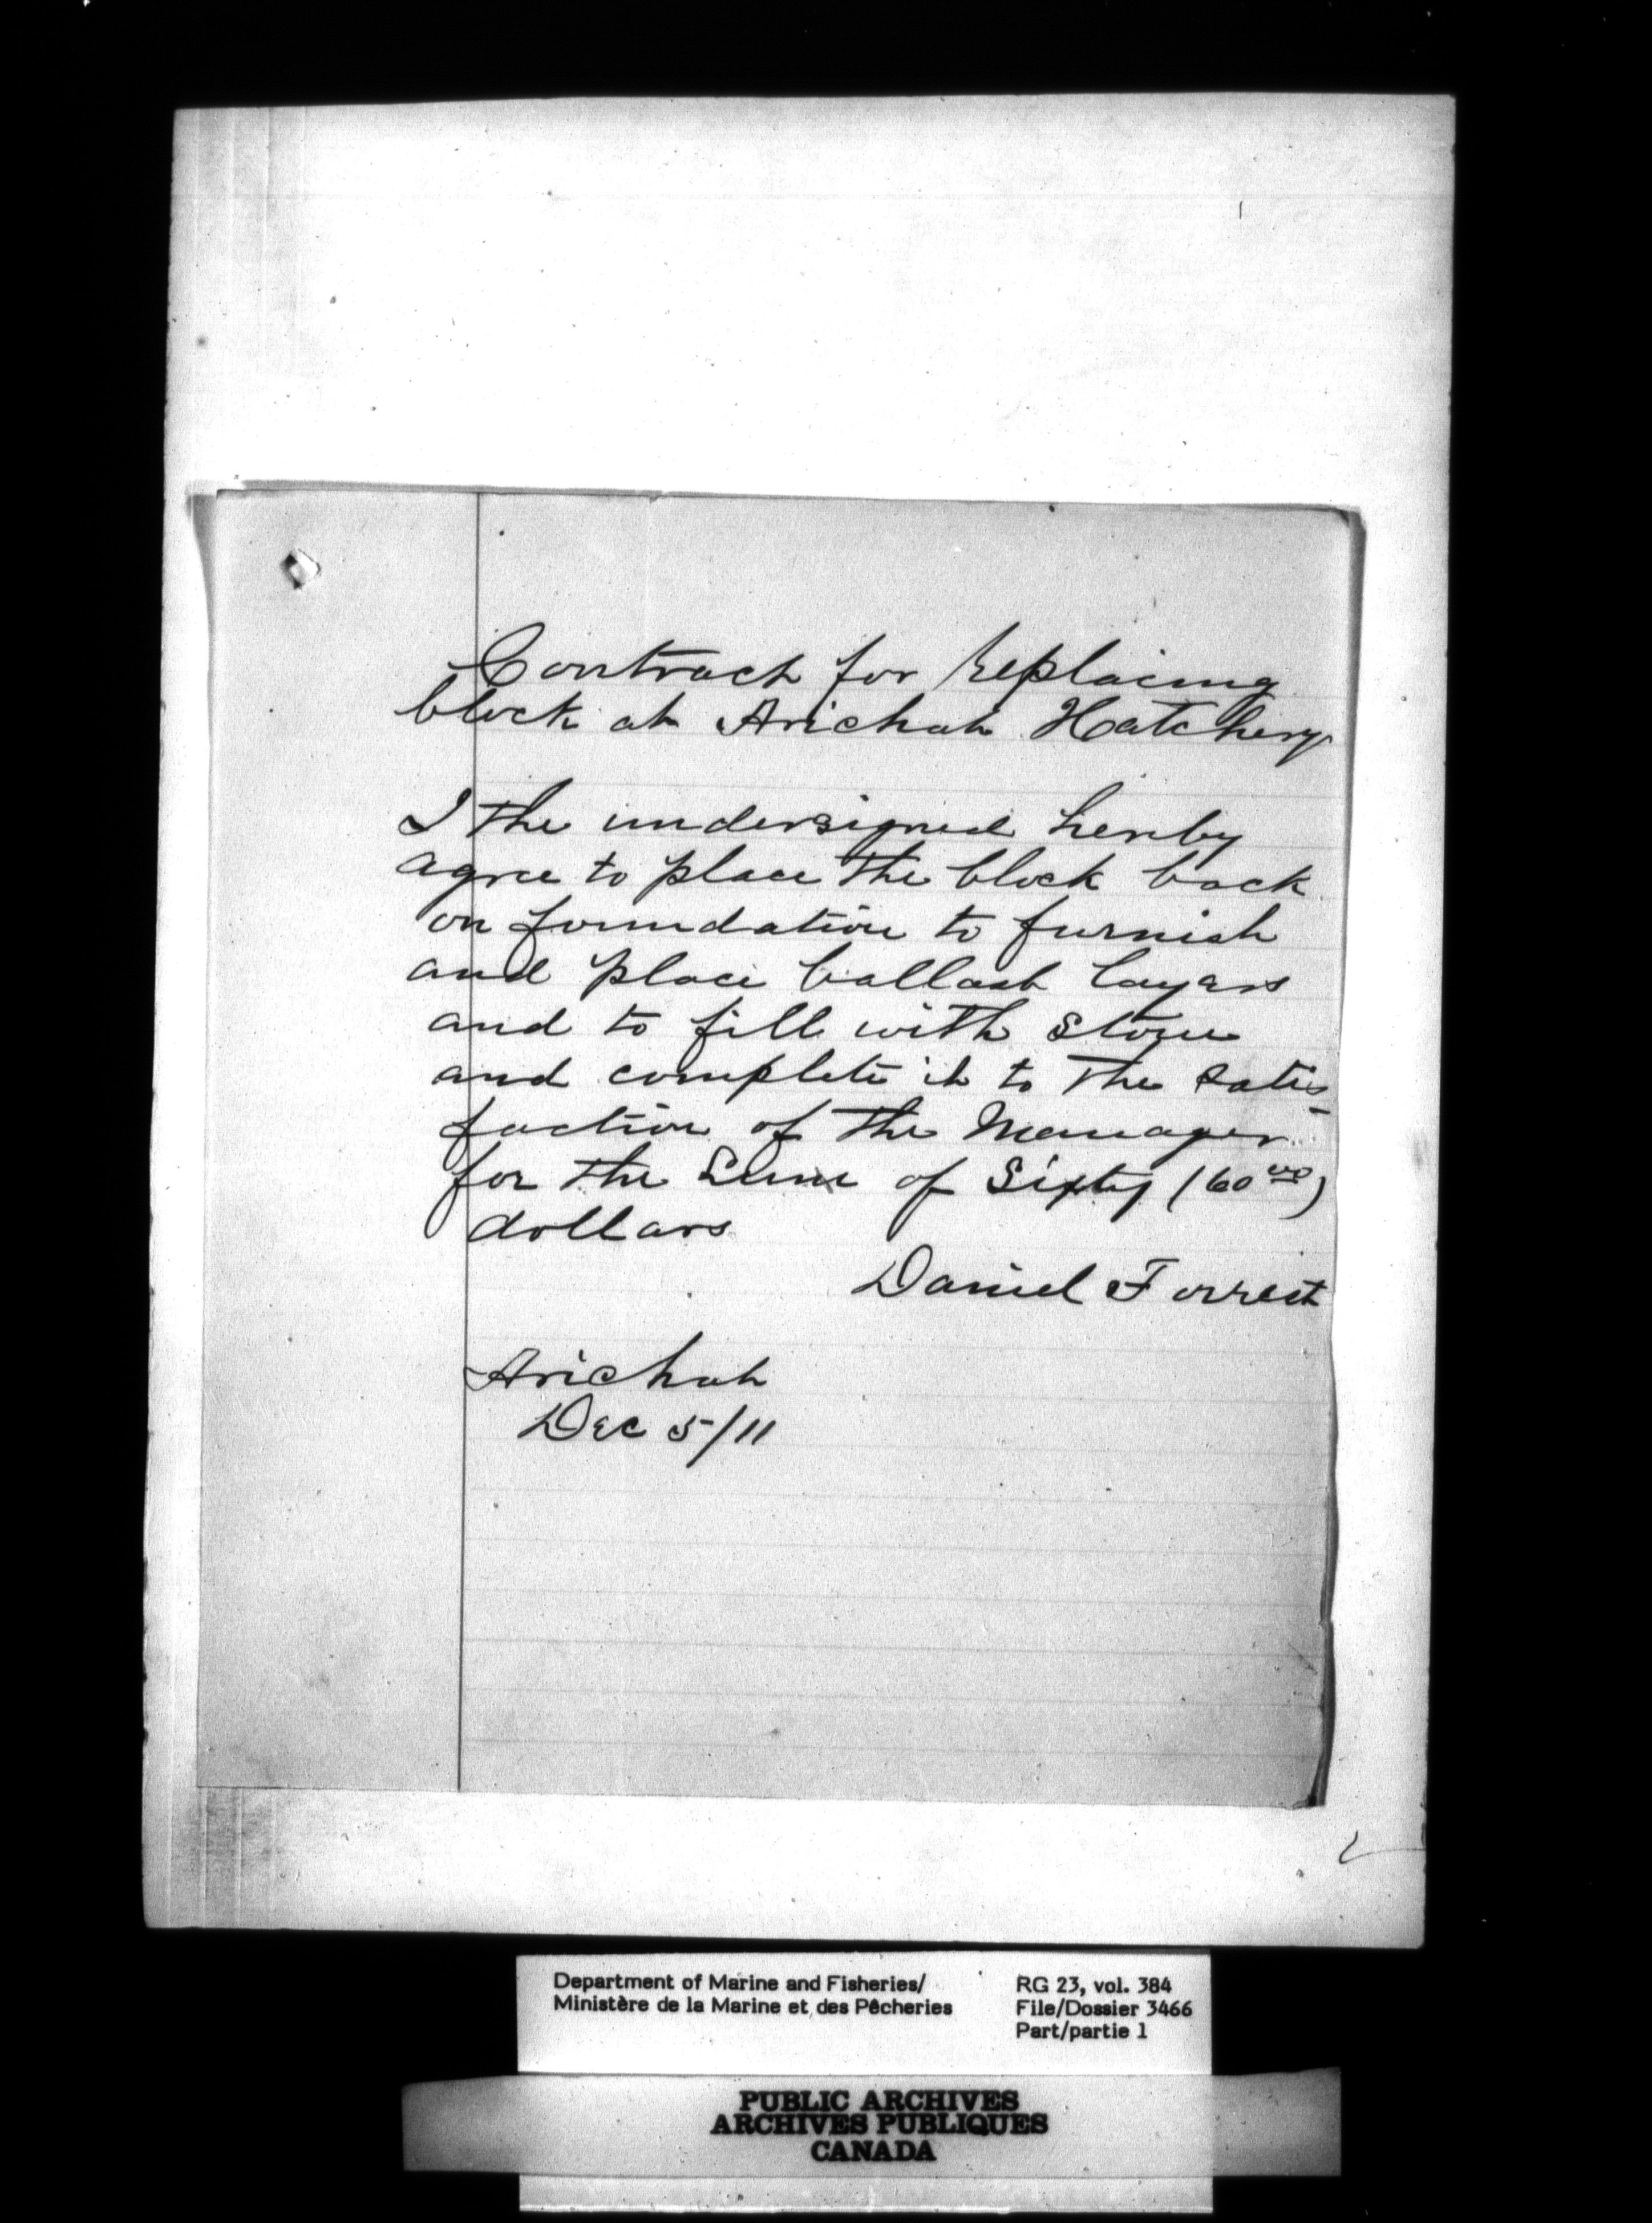 Contract for Replacing
block at Arichat Hatchery
I the undersigned herby
agree to place the block back
on foundation to furnish
and place ballast layers
and to fill with stone
and complete it to the satis-
faction of the Manager
for the Sum of Sixty (60 00)
dollars
Daniel Forrest
Arichat
Dec 5/11
Department of Marine and Fisheries/
Ministère de la Marine et des Pêcheries
RG 23, vol. 384
File/Dossier 3466
Part/partie 1
PUBLIC ARCHIVES
ARCHIVES PUBLIQUES
CANADA